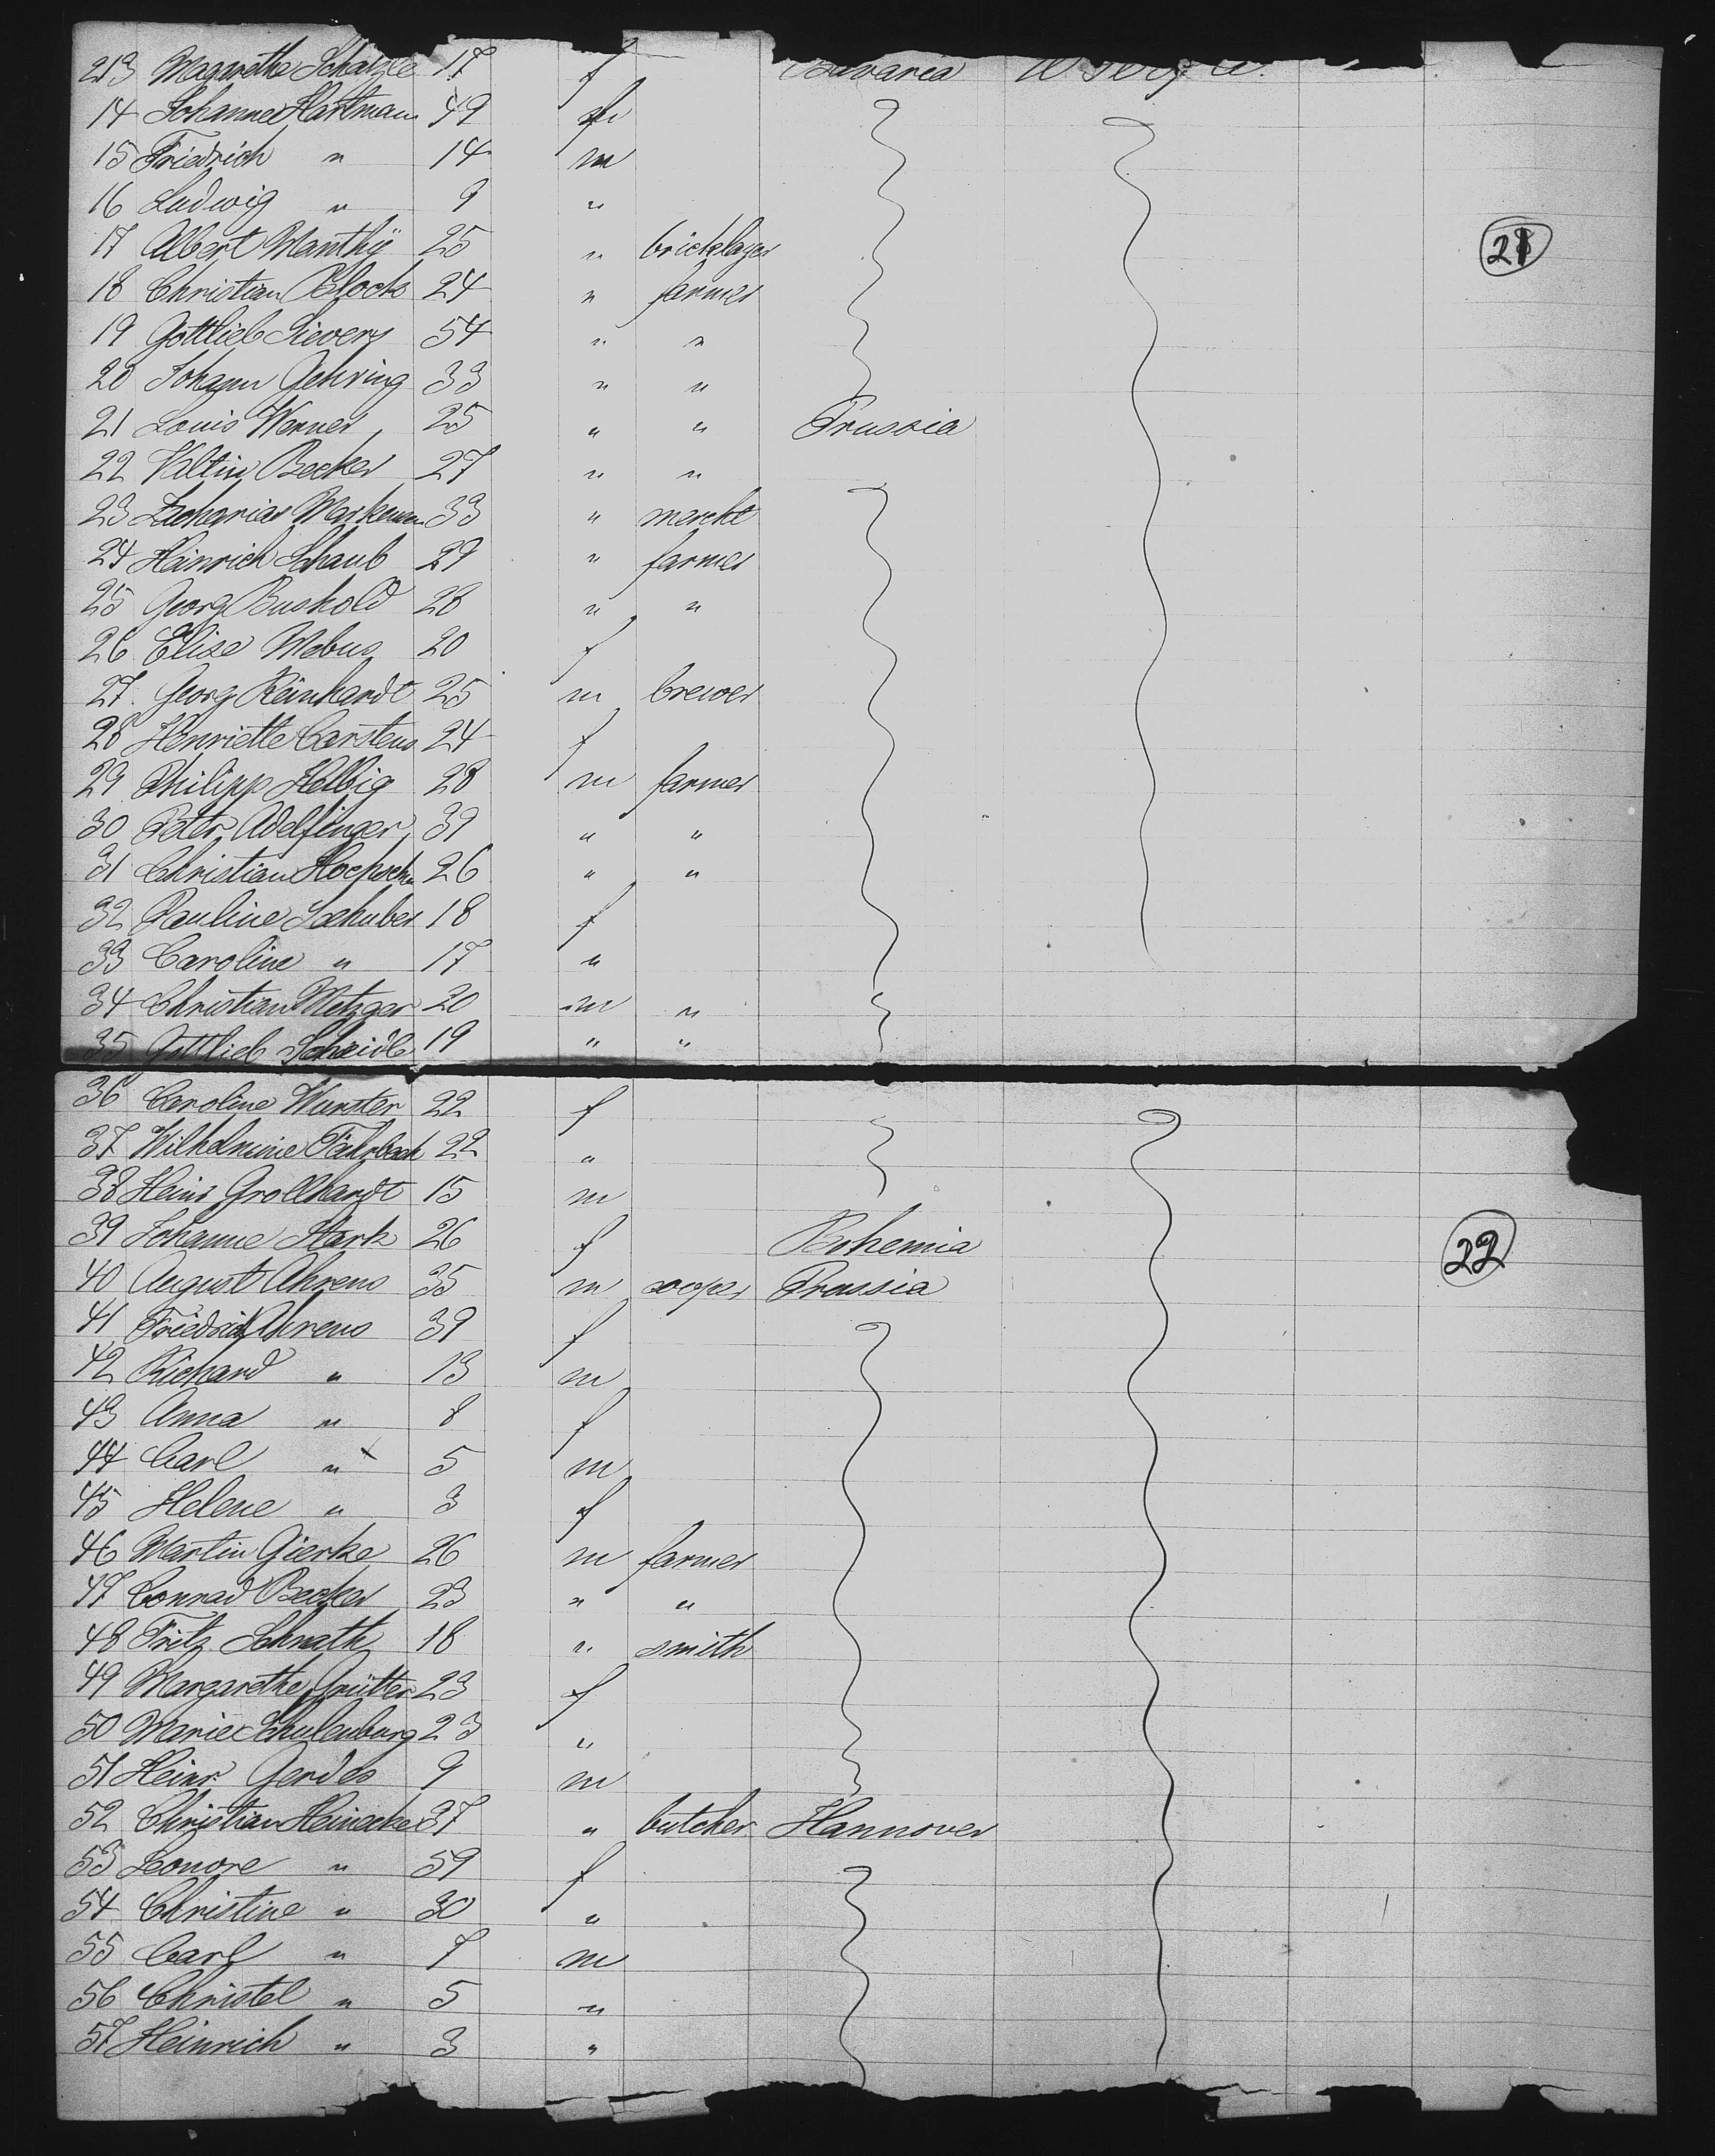 213 Magarethe Schatzle 17 f Bavaria U S of A.
14 Johanne Hartmann 49 f
15 Friedrich " 14 m
16 Ludwig " 9 "
17 Albert Manthÿ 25 " bricklayer
18 Christian Block 24 " farmer
19 Gottlieb Sievers 54 " "
20 Johann Gehring 33 " "
21 Louis Werner 25 " " Prussia
22 Valtin Becker 27 " "
23 Zacharias 33 " mercht
24 Heinrich Schaub 29 " farmer
25 Georg Buskold 28 " "
26 Elise Mobus 20 f
27 Georg Reinhardt 25 m brewer
28 Henriette Carstens 24 f
29 Philipp Helbig 28 m farmer
30 Peter Adelfinger 39 " "
31 Christian 26 " "
32 Pauline 18 f
33 Caroline " 17 "
34 Christian Metzger 20 m "
35 Gottlieb Scheidle 19 " "
21
36 Caroline Wurster 22 f
37 Wilhelmine Fahrbach 22 "
38 Heinr Grollhardt 15 m
39 Johanne Stark 26 f Bohemia
40 August Ahrens 35 m cooper Prussia
41 Ahrens 39 f
42 Richard " 13 m
43 Anna " 8 f
44 Carl " 5 m
45 Helene " 3 f
46 Martin Gierke 26 m farmer
47 Conrad Becker 23 " "
48 Fritz Schnath 18 " smith
49 Margarethe Grütter 23 f
50 Marie Schulenburg 23 "
51 Heinr. Gerdes 9 m
52 Christian Heinecke 37 " butcher Hannover
53 Leonore " 59 f
54 Christine " 30 "
55 Carl " 7 m
56 Christel " 5 "
57 Heinrich " 3 "
22